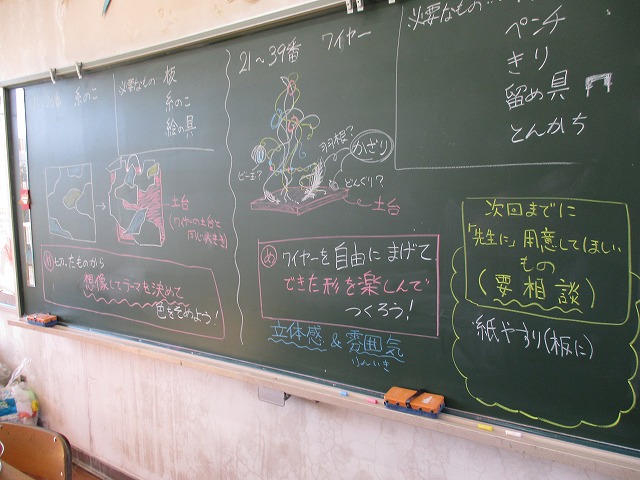 糸のこ
必要なもの…板
糸のこ
絵の具
土台
(ワイヤーの土台と
同じ大きさ)
め 切ったものから
想像してテーマを決めて
色をそめよう!
21〜39番 ワイヤー
羽根?
かざり
ビー玉?
どんぐり?
土台
め ワイヤーを自由にまげて
できた形を楽しんで
つくろう!
立体感&雰囲気
ふんいき
必要なもの…
ペンチ
きり
留め具
とんかち
次回までに
「先生に」用意してほしい
もの
(要相談)
紙やすり(板に)